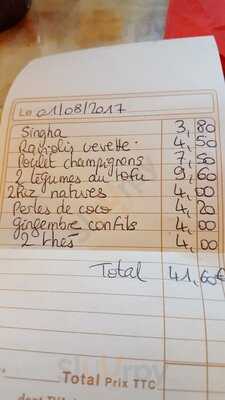 Le 01/08/2017
Singha 3,80
Raviolis crevette. 4,50
Poulet champignons 7,50
2 légumes du tofu 9,60
2 Riz natures 4,00
Perles de coco 4,20
Gingembre confits 4,00
2 thés 4,00
Total 41,60€
Total Prix TTC